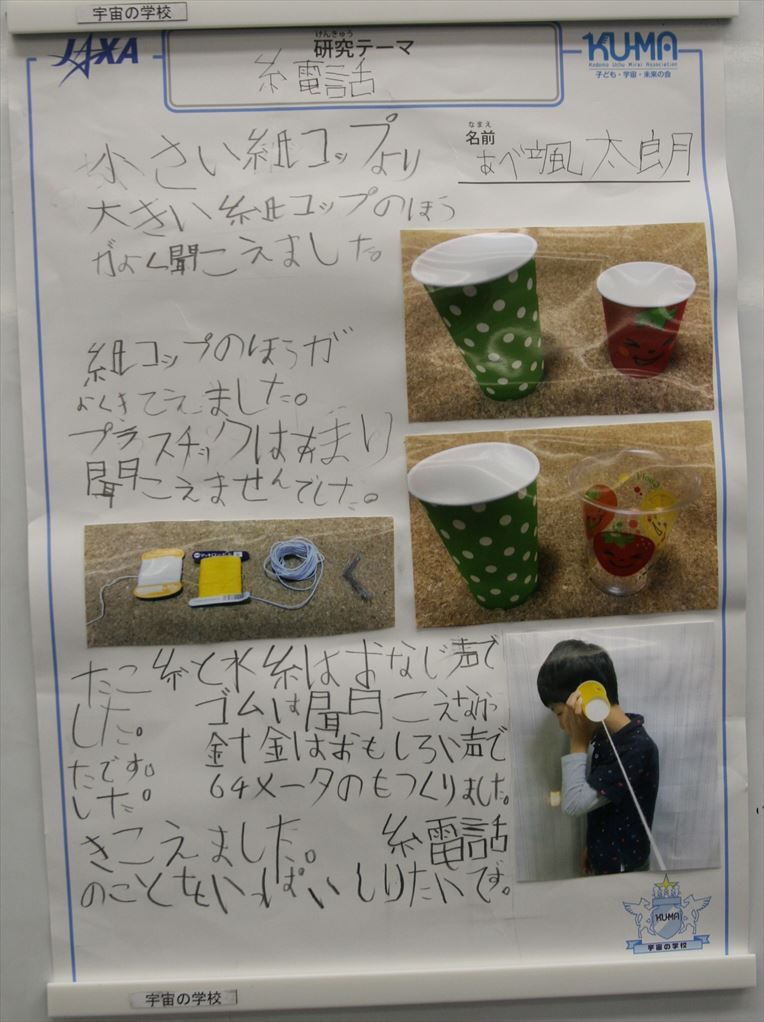 宇宙の学校
JAXA
けんきゅう
研究テーマ
糸電話
KU-MA
Kodomo Uchu Mirai Association
子ども・宇宙・未来の会
なまえ
名前
あべ颯太朗
小さい紙コップより
大きい紙コップのほう
がよく聞こえました。
紙コップのほうが
よくきこえました。
プラスチックはあまり
聞こえませんでした。
たこ糸と水糸はおなじ声で
した。 ゴムは聞こえなかっ
たです。 針金はおもしろい声で
した。 64メータのもつくりました。
きこえました。 糸電話
のことをいっぱいしりたいです。
KUMA
宇宙の学校
宇宙の学校